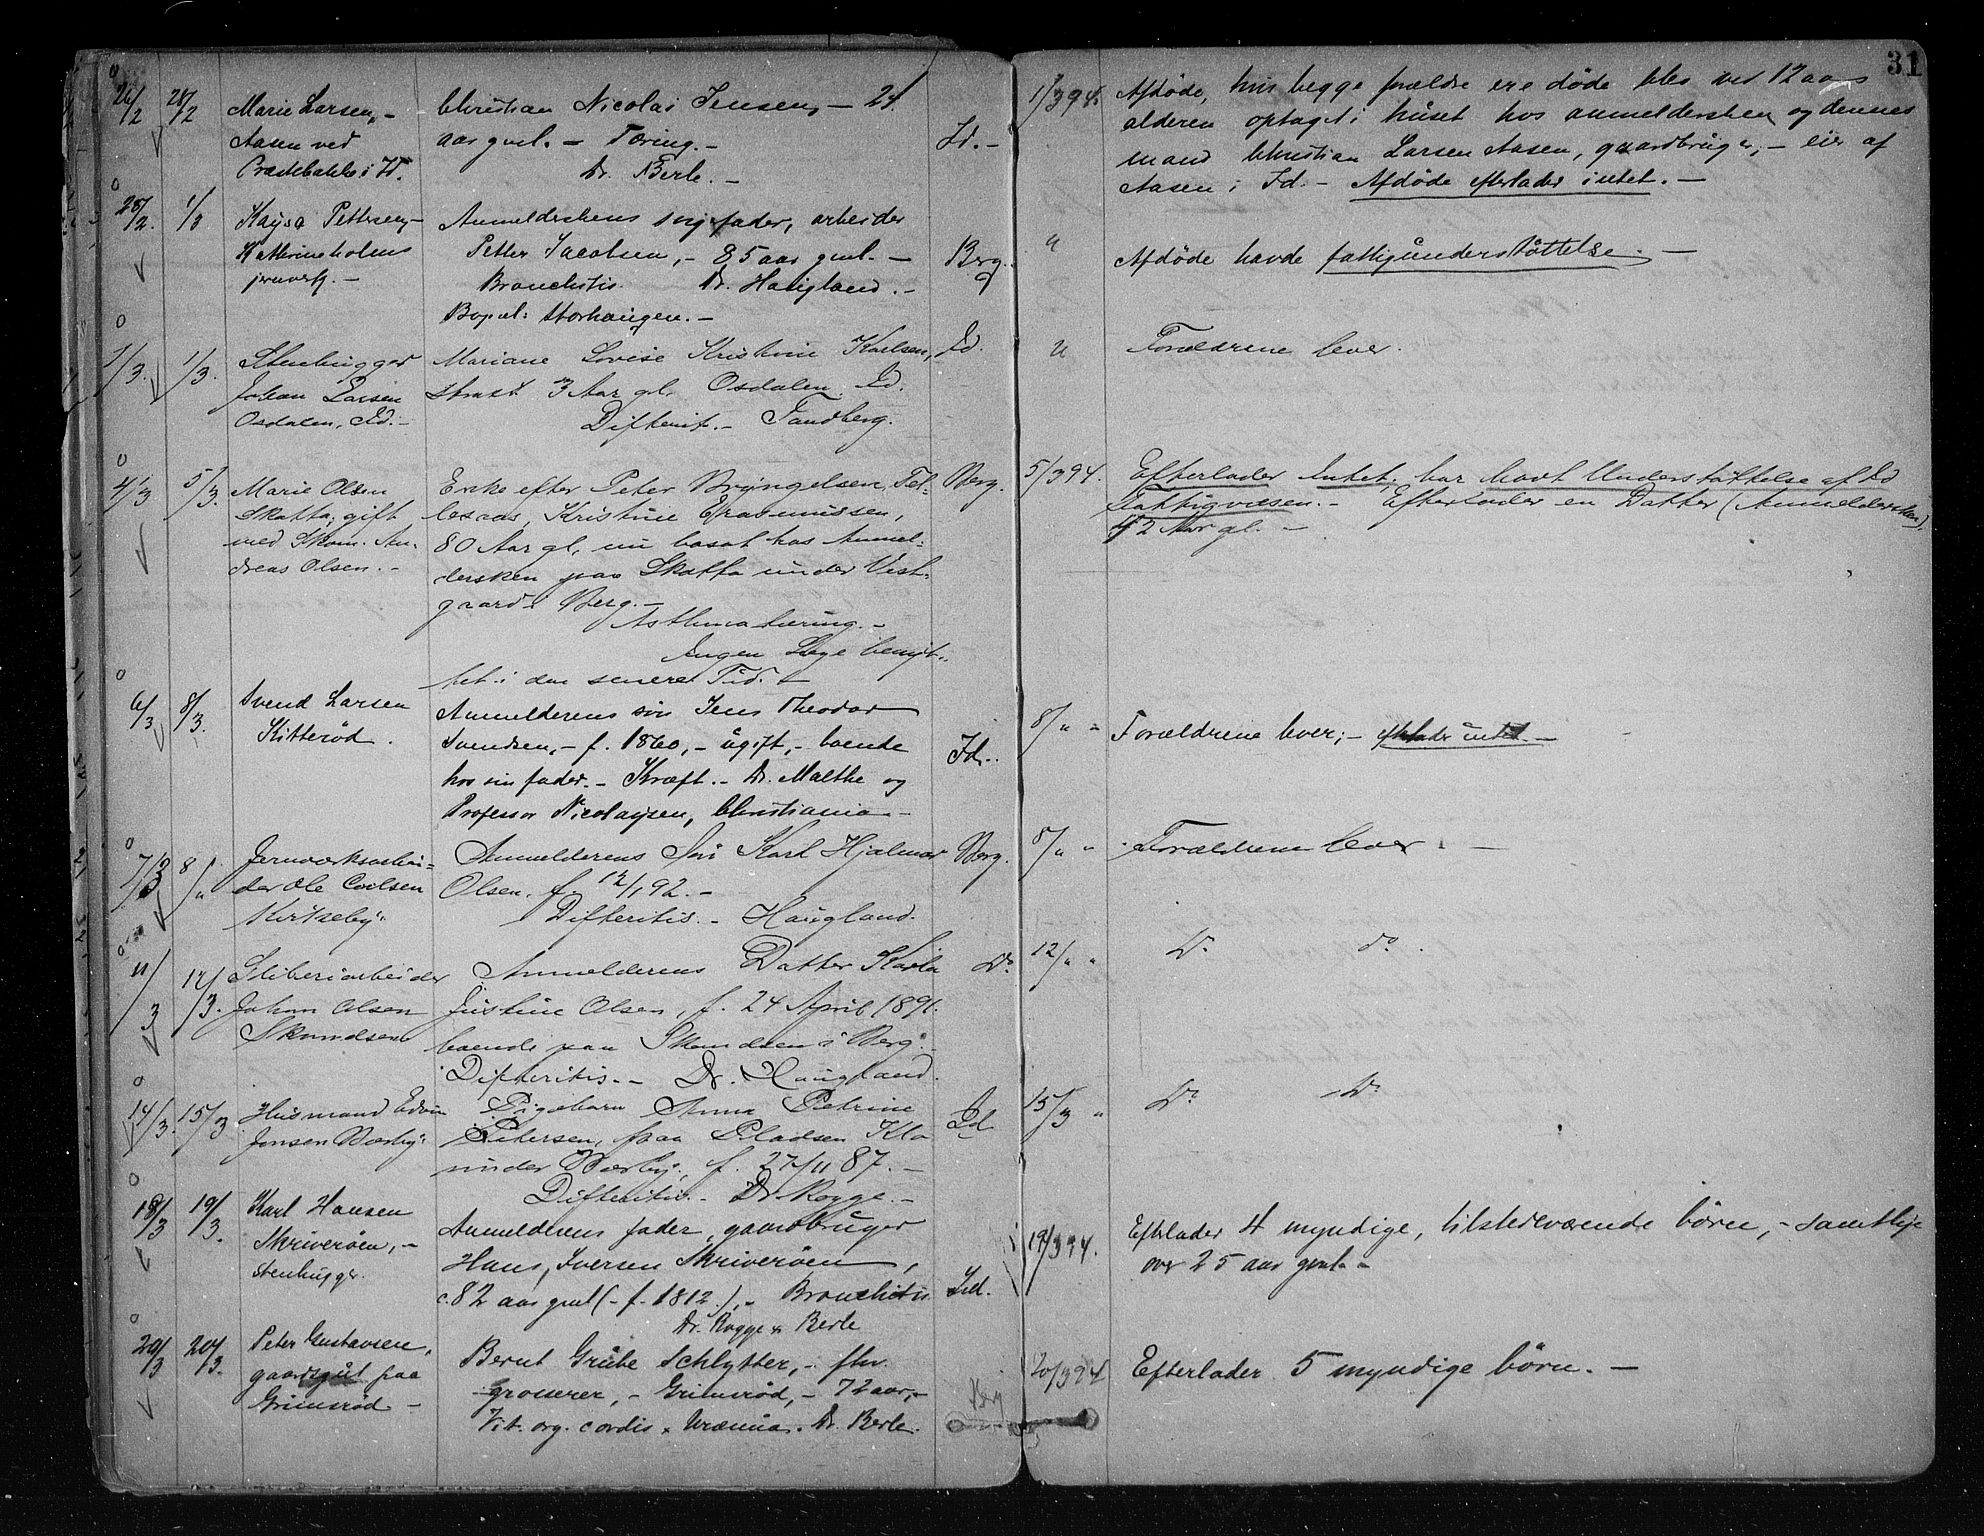 31
26/2 28/2 Marie Larsen, - Christian Nicolai Jensen, - 21 1/3 94. Afdøde, hvis begge forældre ere døde blev ved 12 aars
Aasen ved aar gml. - Tæring. - Id. - alderen optaget i huset hos anmeldersken og dennes
i Id. Dr. Berle. - mand Christian Larsen Aasen, gaardbruger, - eier af
Aasen i Id. - Afdøde efterlader intet. -
28/2. 1/3 Kaysa Pettersen, - Anmelderskens svigerfader, arbeider
Kathrineholms Petter Jacobsen, - 85 aar gml. - Berg. " Afdøde havde fattigunderstøttelse. -
jernverk. - Bronchitis. Dr. Haugland. -
Bopæl: Storhaugen. -
1/3. 1/3. Stenhugger Mariane Lovise Kristine Karlsen, Id. " Forældrene lever.
Johan Larsen 3 Aar gl. Osdalen, Id.
Osdalen, Id. - Difterit. - Tandberg.
4/3 5/3. Marie Olsen Enke efter Peter Bryngelsen, Tel- Berg. 5/3 94. Efterlader Intet; har havt Understøttelse af Id
Skatta, gift Kristine Erasmussen, Fattigvæsen. - Efterlader en Datter (Anmeldersken)
med Skom. An- 80 Aar gl., nu bosat hos Anmel- 42 Aar gl. -
dreas Olsen. - dersken paa Skatta under Vest-
gaard i Berg. -
Asthma tæring. -
Ingen Læge benyt-
tet i den senere Tid. -
6/3 8/3. Svend Larsen Anmelderens søn Jens Theodor 8/" " Forældrene lever; - efterlader intet -
Kitterød. Svendsen, - f. 1860, - ugift, - boende Id. -
hos sin fader. - Kræft. - Dr. Malthe og
Professor Nicolaysen, Christiania -
7/3 8/" Jernværksarbei- Anmelderens Søn Karl Hjalmar Berg. 8/" " Forældrene lever. -
der Ole Carlsen Olsen, f. 12/1 92. -
Kirkeby. Difteritis. - Haugland.
11/3 12/3. Sliberiarbeider Anmelderens Datter Karla Do 12/" " Do do.
Johan Olsen Justine Olsen, f. 24 April 1891.
boende paa i Berg. -
Difteritis. - Dr. Haugland.
14/3. 15/3 Husmand Edvin Pigebarn Anna Petrine Id. 15/3 " Do Do
Jensen Bærby. Petersen, paa Pladsen Klo
under Bærby, f. 27/11 87. -
Difteritis. - Dr. Rogge. -
18/3 19/3. Karl Hansen Anmelderens fader, gaardbruger 19/3 94. Efterlader 4 myndige, tilstedeværende børn, - samtlige
Skriverøen, - Hans Iversen Skriverøen, over 25 aar gml. -
stenhugger. c. 82 aar gml (- f. 1812.), - Bronchitis Id.
Dr. Rogge & Berle
20/3 20/3. Peter Gustavsen, Bernt Grube Schlytter, - fhv. 20/3 94 Efterlader 5 myndige børn. -
gaardsgut paa grosserer, - Grimsrød, - 72 aar, - Berg
Grimsrød - Vit. org. cordis & Uræmia. Dr. Berle.